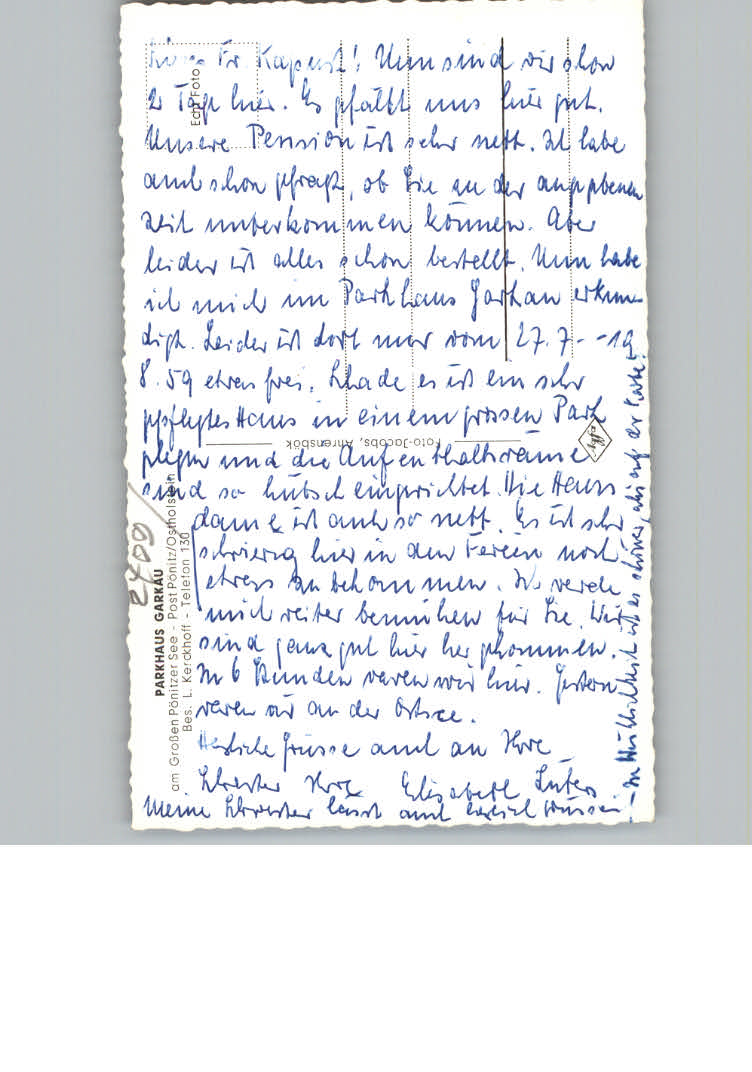 Liebe Fr. Kapust! Nun sind wir schon
2 Tage hier. Es gefällt uns hier gut.
Unsere Pension ist sehr nett. Ich habe
auch schon gefragt, ob Sie zu der angegebenen
Zeit unterkommen können. Aber
leider ist alles schon bestellt. Nun habe
ich mich im Parkhaus Garkau erkun-
digt. Leider ist dort nur vom 27.7. - 19
8. 59 etwas frei. Schade es ist ein sehr
gepflegtes Haus in einem grossen Park
gelegen und die Aufenthaltsräume
sind so hübsch eingerichtet. Die Haus
dame ist auch so nett. Es ist sehr
schwierig hier in den Ferien noch
etwas zu bekommen. Ich werde
mich weiter bemühen für Sie. Wir
sind ganz gut hier her gekommen.
In 6 Stunden waren wir hier. Gestern
waren wir an der Ostsee.
Herzliche Grüsse auch an Ihre
Schwester Ihre Elisabeth
Meine Schwester lässt auch herzlich grüssen
- In Wirklichkeit ist es schöner, als auf der Karte!
Echt Foto
Foto-Jacobs, Ahrensbök
Agfa
2409
PARKHAUS GARKAU
am Großen Pönitzer See - Post Pönitz/Ostholstein
Bes. L. Kerckhoff - Telefon 130